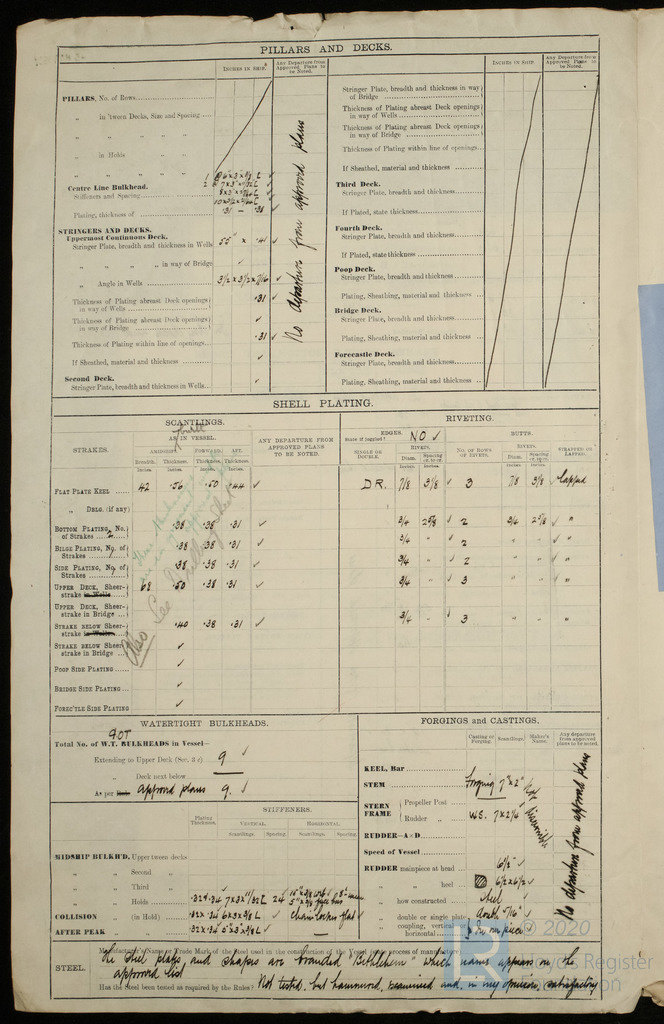 PILLARS AND DECKS.
INCHES IN SHIP.
Any Departure from Approved Plans to be Noted.
PILLARS, No. of Rows
„ in 'tween Decks, Size and Spacing
„ „ „ „
„ in Holds „
„ „ „
Centre Line Bulkhead.
Stiffeners and Spacing
Plating, thickness of .31 — .38
No departure from approved plans
STRINGERS AND DECKS.
Uppermost Continuous Deck.
Stringer Plate, breadth and thickness in Wells 55" x .41 ✓
„ „ „ „ in way of Bridge ✓
„ Angle in Wells 3½ x 3½ x 7/16 ✓
Thickness of Plating abreast Deck openings in way of Wells .31 ✓
Thickness of Plating abreast Deck openings in way of Bridge ✓
Thickness of Plating within line of openings .31 ✓
If Sheathed, material and thickness ✓
Second Deck.
Stringer Plate, breadth and thickness in Wells ✓
INCHES IN SHIP.
Any Departure from Approved Plans to be Noted.
Stringer Plate, breadth and thickness in way of Bridge
Thickness of Plating abreast Deck openings in way of Wells
Thickness of Plating abreast Deck openings in way of Bridge
Thickness of Plating within line of openings
If Sheathed, material and thickness
Third Deck.
Stringer Plate, breadth and thickness
If Plated, state thickness
Fourth Deck.
Stringer Plate, breadth and thickness
If Plated, state thickness
Poop Deck.
Stringer Plate, breadth and thickness
Plating, Sheathing, material and thickness
Bridge Deck.
Stringer Plate, breadth and thickness
Plating, Sheathing, material and thickness
Forecastle Deck.
Stringer Plate, breadth and thickness
Plating, Sheathing, material and thickness
SHELL PLATING.
SCANTLINGS.
RIVETING.
STRAKES.
AS IN VESSEL.
AMIDSHIPS. FORWARD. AFT.
Breadth. Thickness. Thickness. Thickness.
Inches Inches Inches Inches
ANY DEPARTURE FROM APPROVED PLANS TO BE NOTED.
EDGES.
State if joggled? NO ✓
SINGLE OR DOUBLE.
RIVETS.
Diam. Spacing cr. to cr.
Inches Inches
NO. OF ROWS OF RIVETS.
BUTTS.
RIVETS.
Diam. Spacing cr. to cr.
Inches Inches
STRAPPED OR LAPPED.
FLAT PLATE KEEL 42 .56 .50 .44 ✓ DR. 7/8 3⅛ ✓ 3 7/8 3⅛ ✓ Lapped
„ DBLG. (if any)
BOTTOM PLATING, No. of Strakes 2 .38 .38 .31 ✓ ¾ 2⅝ ✓ 2 ¾ 2⅝ ✓ "
BILGE PLATING, No. of Strakes .38 .38 .31 ✓ ¾ " ✓ 2 " " ✓ "
SIDE PLATING, No. of Strakes .38 .38 .31 ¾ " ✓ 2 " " ✓ "
UPPER DECK, Sheerstrake in Wells 68 .50 .38 .31 ✓ ¾ " ✓ 3 " " ✓ "
UPPER DECK, Sheerstrake in Bridge
STRAKE BELOW Sheerstrake in Wells .40 .38 .31 ✓ ¾ ✓ 3 " " "
STRAKE BELOW Sheerstrake in Bridge ✓
POOP SIDE PLATING ✓
BRIDGE SIDE PLATING ✓
FOREC'TLE SIDE PLATING ✓
Also See
WATERTIGHT BULKHEADS.
Total No. of W.T. BULKHEADS in Vessel—
Extending to Upper Deck (Sec. 3 c) 9 ✓
„ Deck next below
As per approved plans 9. ✓
STIFFENERS.
Plating Thickness. VERTICAL. HORIZONTAL.
Scantlings. Spacing Scantlings. Spacing
MIDSHIP BULKH'D, Upper tween decks
„ „ Second „
„ „ Third „
„ „ Holds
COLLISION „ (in Hold)
AFTER PEAK „ „
FORGINGS and CASTINGS.
Casting or Forging. Scantlings. Maker's Name. Any departure from approved plans to be noted.
KEEL, Bar
STEM Forging 7" x 2"
STERN FRAME Propeller Post
Rudder „
RUDDER—A×D
Speed of Vessel
RUDDER mainpiece at head 6½" ✓
„ „ heel 6½ x 6½ ✓
„ how constructed Steel
„ double or single plate double 5/16" ✓
„ coupling, vertical or horizontal
No departure from approved plans
Manufacturer's Name or Trade Mark of the Steel used in the construction of the Vessel (state process of manufacture)
STEEL. The steel plates and shapes are branded "Bethlehem" which name appears on the
approved list
Has the Steel been tested as required by the Rules? Not tested, but hammered, examined and in my opinion, satisfactory
© 2020
Lloyd's Register
Foundation